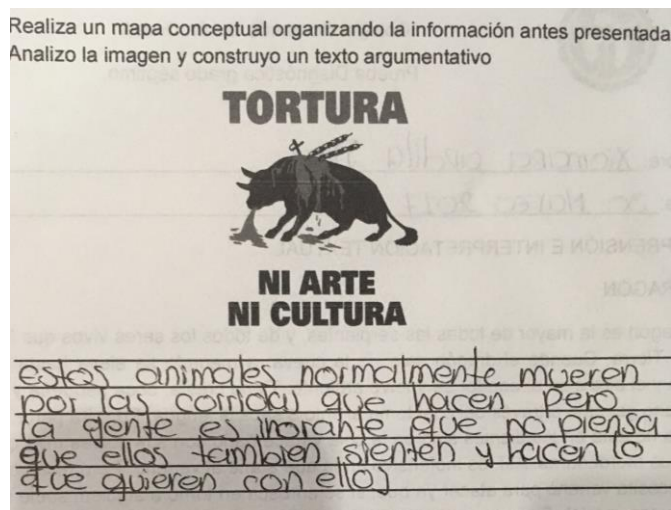 Realiza un mapa conceptual organizando la información antes presentada
Analizo la imagen y construyo un texto argumentativo
TORTURA
NI ARTE
NI CULTURA
estos animales normalmente mueren
por las corridas que hacen pero
la gente es inorante que no piensa
que ellos tambien sienten y hacen lo
que quieren con ellos